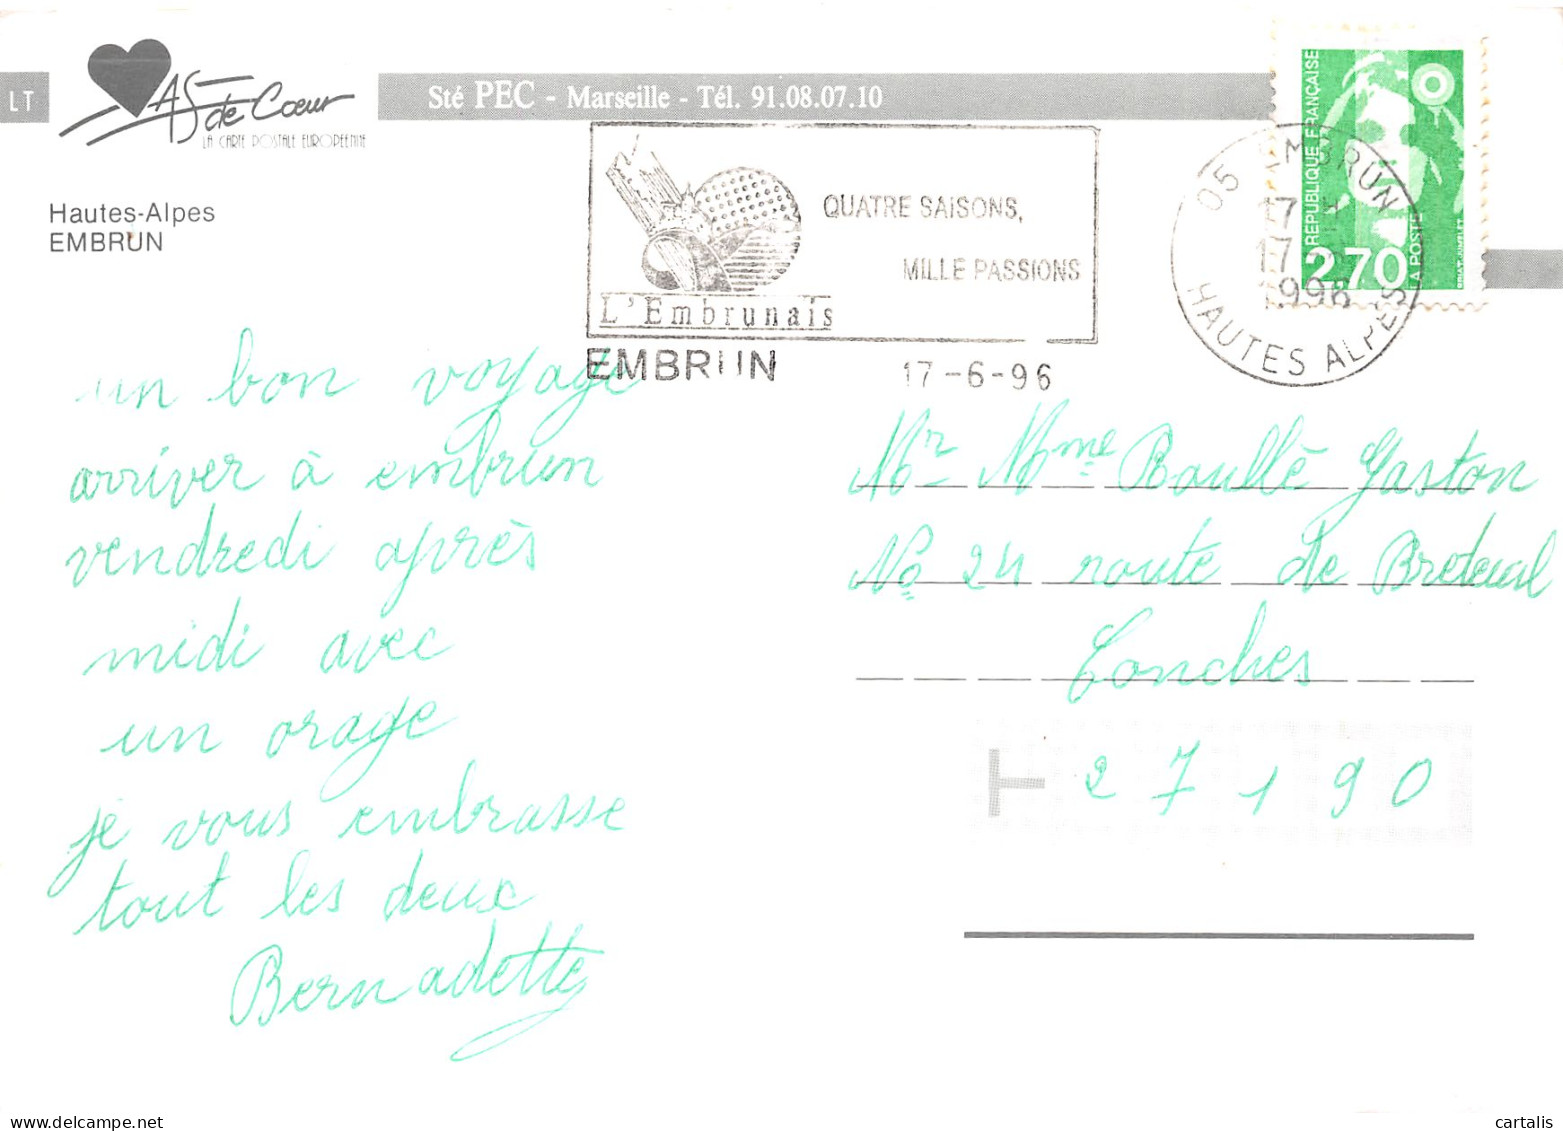 LT
AS de Cœur
LA CARTE POSTALE EUROPÉENNE
Sté PEC - Marseille - Tél. 91.08.07.10
Hautes-Alpes
EMBRUN
QUATRE SAISONS,
MILLE PASSIONS
L'Embrunais
EMBRUN
17-6-96
05 EMBRUN
17 H
17
1996
HAUTES ALPES
RÉPUBLIQUE FRANÇAISE
2,70
LA POSTE
un bon voyage
arriver à embrun
vendredi après
midi avec
un orage
je vous embrasse
tout les deux
Bernadette
Mr Mme Roullé Gaston
No 24 route de Breteuil
Conches
27190
cartalis